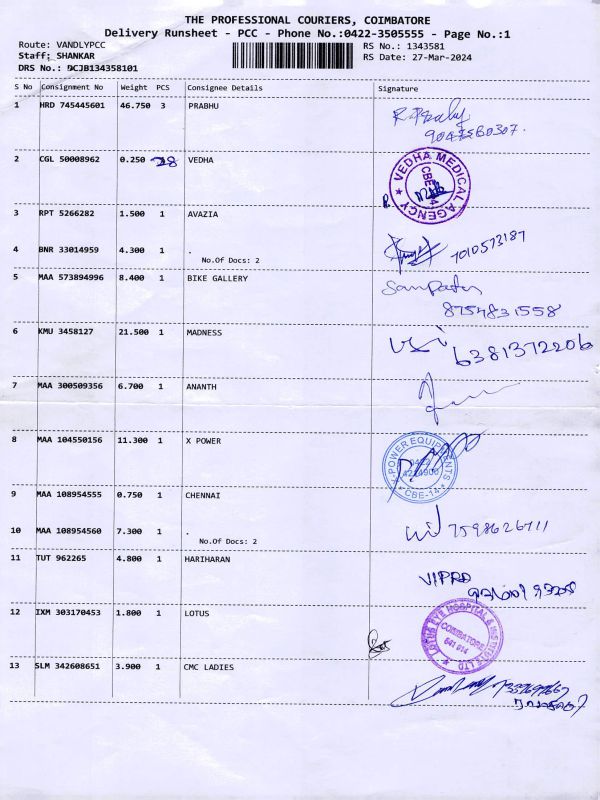 THE PROFESSIONAL COURIERS, COIMBATORE
Delivery Runsheet - PCC - Phone No.:0422-3505555 - Page No.:1
Route: VANDLYPCC RS No.: 1343581
Staff: SHANKAR RS Date: 27-Mar-2024
DRS No.: DCJB134358101
S No Consignment No Weight PCS Consignee Details Signature
1 HRD 745445601 46.750 3 PRABHU
2 CGL 50008962 0.250 28 VEDHA
VEDHA MEDICAL AGENCY
CBE
3 RPT 5266282 1.500 1 AVAZIA
4 BNR 33014959 4.300 1 . 7010573187
No.Of Docs: 2
5 MAA 573894996 8.400 1 BIKE GALLERY
8754831558
6 KMU 3458127 21.500 1 MADNESS
6381372206
7 MAA 300509356 6.700 1 ANANTH
8 MAA 104550156 11.300 1 X POWER
X-POWER EQUIPMENTS
CBE-14
9 MAA 108954555 0.750 1 CHENNAI
10 MAA 108954560 7.300 1 . 7598626711
No.Of Docs: 2
11 TUT 962265 4.800 1 HARIHARAN
12 IXM 303170453 1.800 1 LOTUS
LOTUS EYE HOSPITAL &
COIMBATORE
641 014
13 SLM 342608651 3.900 1 CMC LADIES